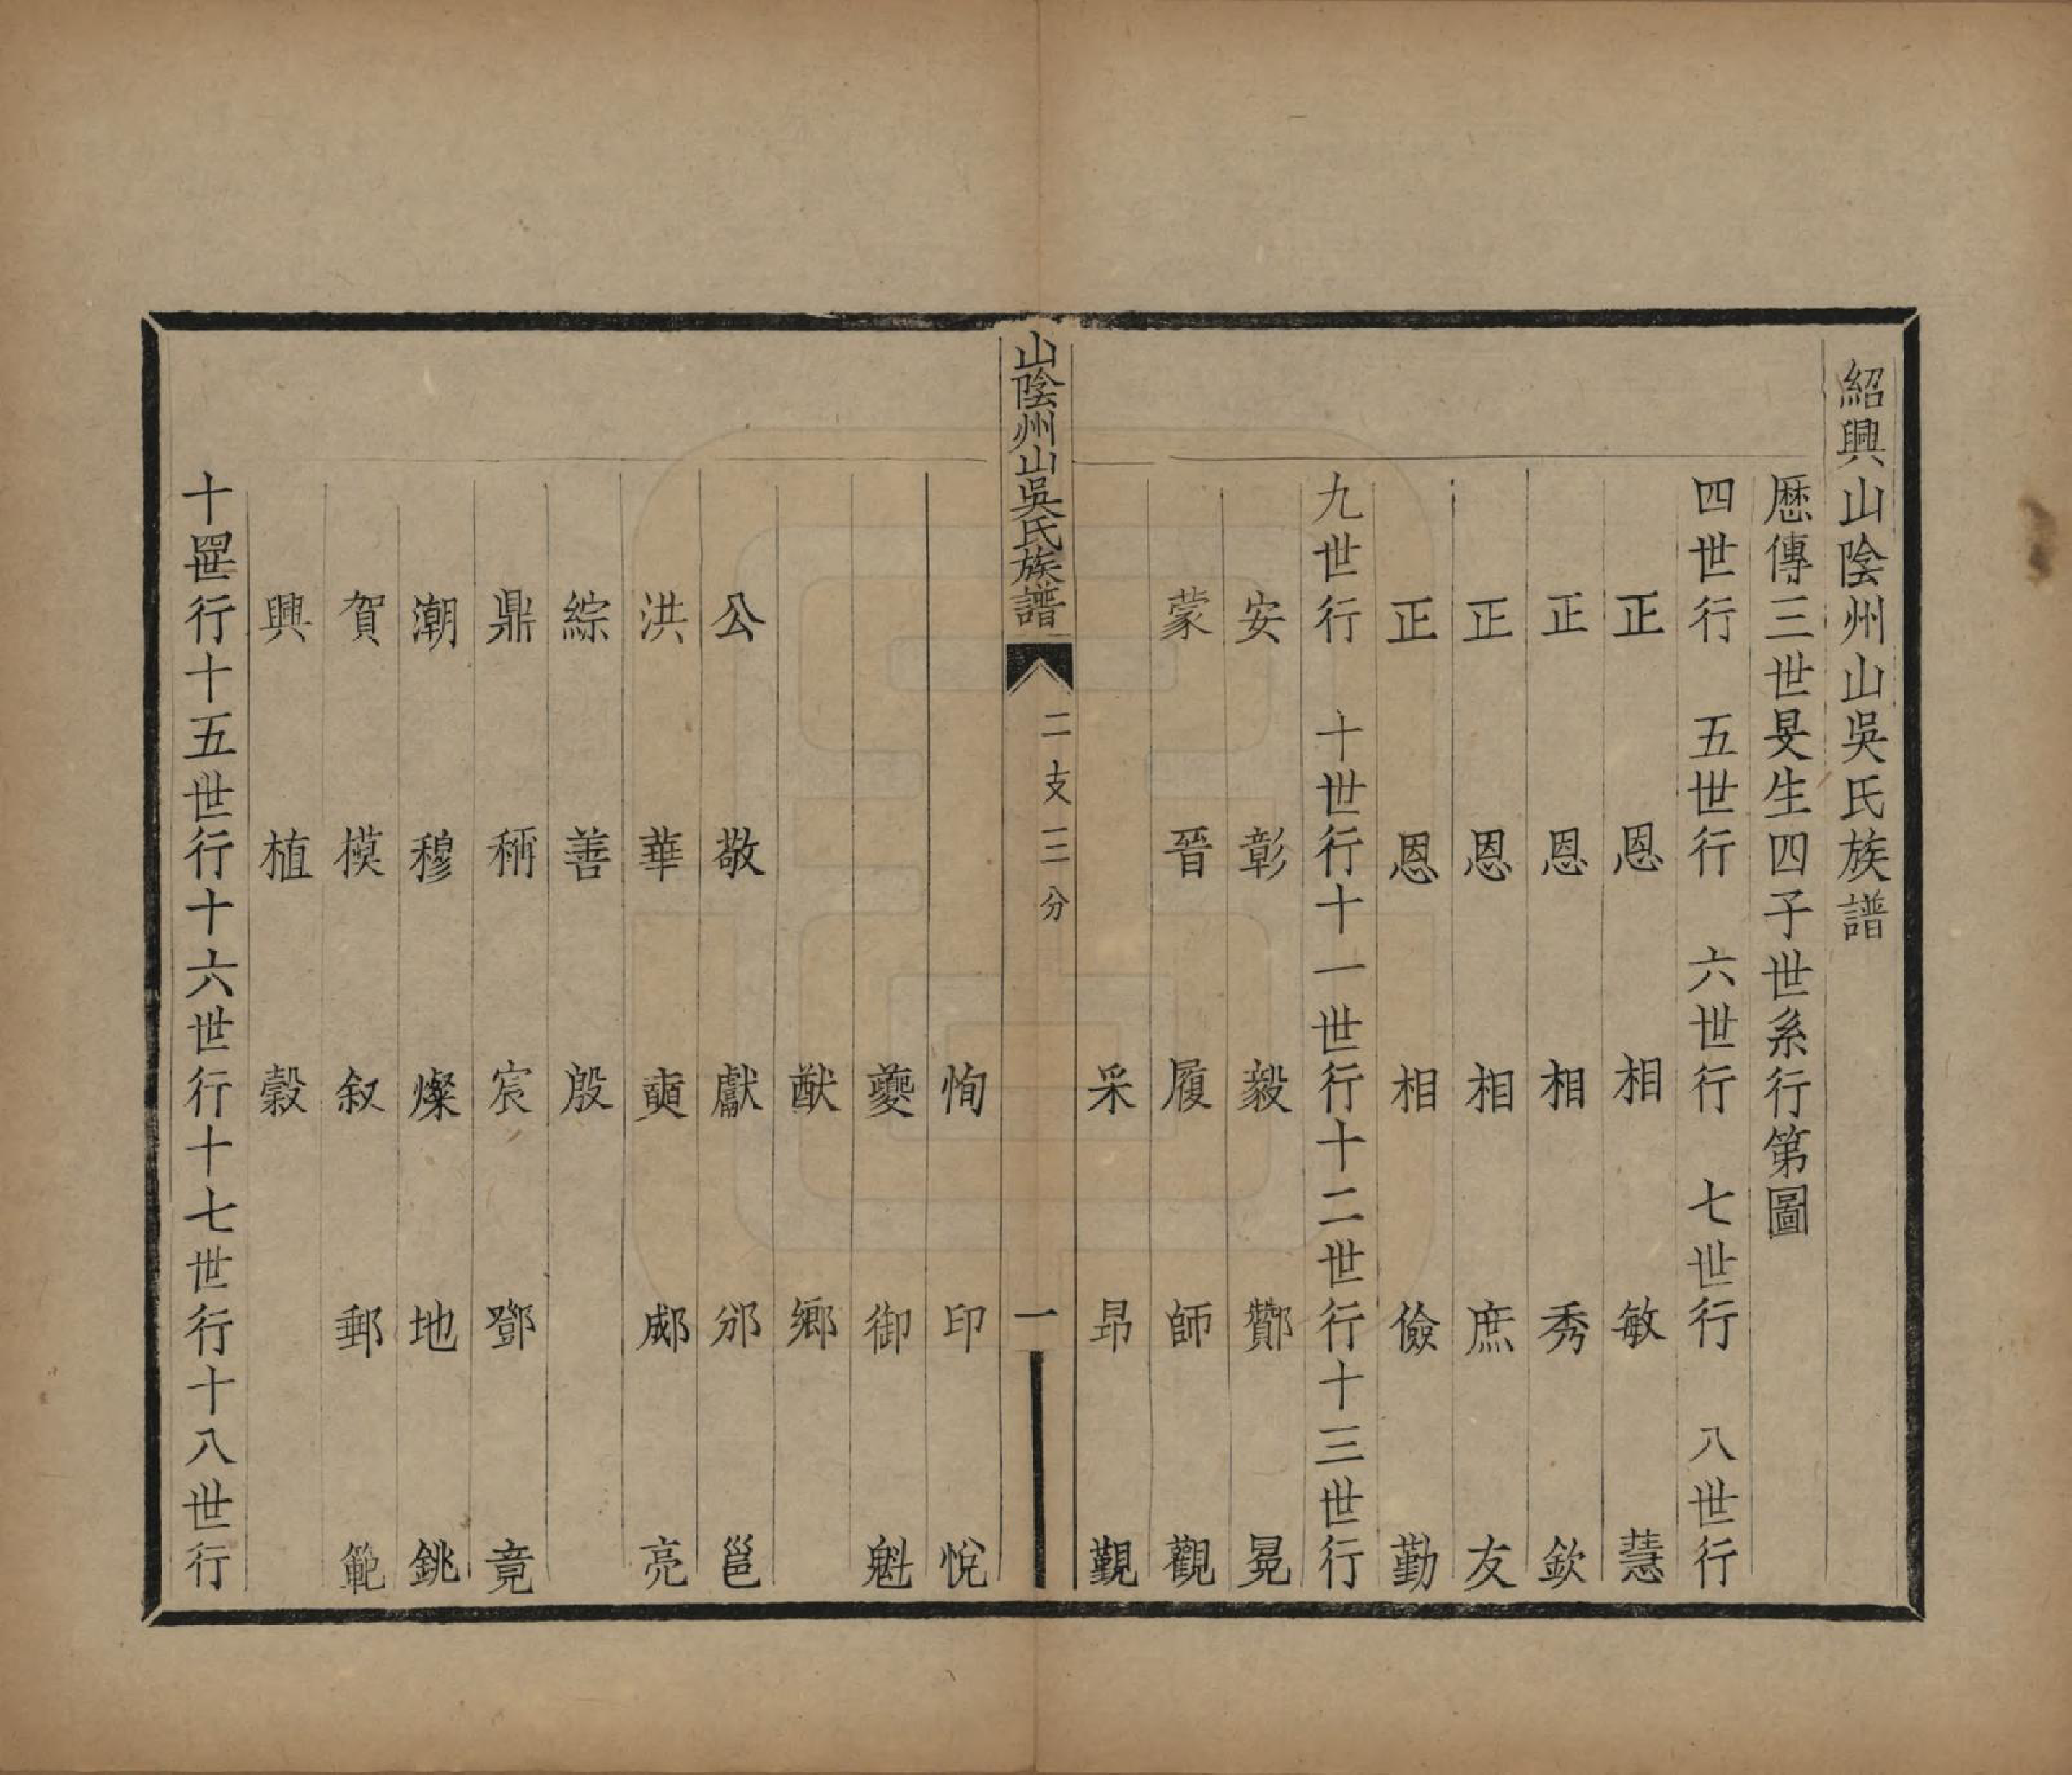 紹興山陰州山吳氏族譜
歷傳三世旻生四子世系行第圖
四世行 五世行 六世行 七世行 八世行
正 恩 相 敏 慧
正 恩 相 秀 欽
正 恩 相 庶 友
正 恩 相 儉 勤
九世行 十世行十一世行十二世行十三世行
安 彰 毅 酇 冕
蒙 晉 履 師 觀
采 昂 覲
山陰州山吳氏族譜 二支二分 一
恂 印 悅
夔 御 魁
猷 鄉
公 敬 獻 邠 邕
洪 華 奭 郕 亮
綜 善 殷
鼎 稱 宸 鄧 竟
潮 穆 燦 地 銚
賀 模 叙 郵 範
興 植 穀
十四世行十五世行十六世行十七世行十八世行